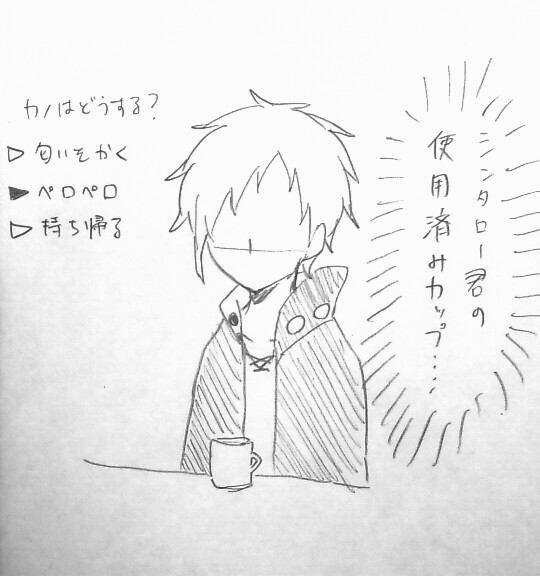 カノはどうする?
▷匂いをかぐ
▶ペロペロ
▷持ち帰る
シンタロー君の
使用済みカップ・・・